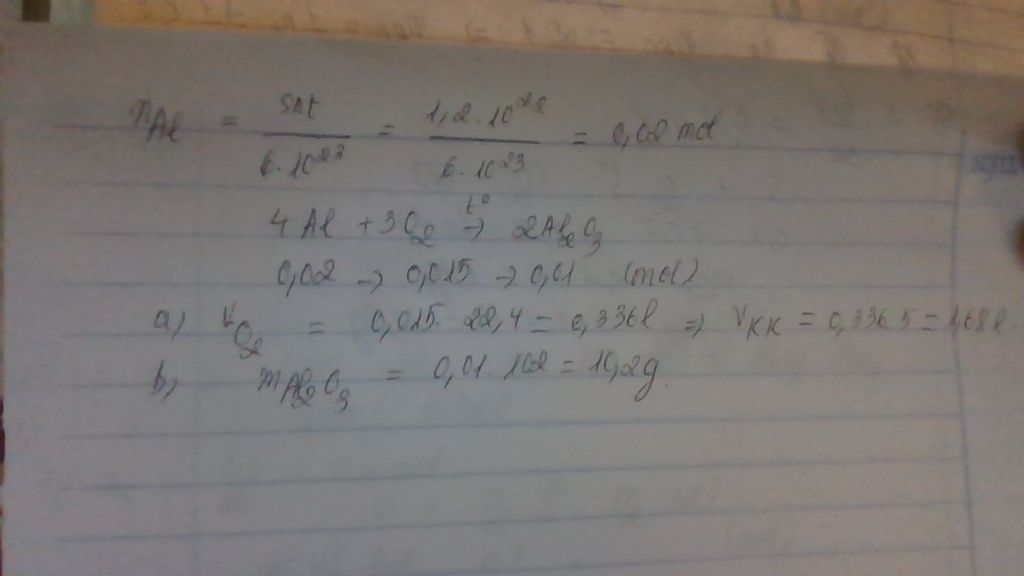 nAl = snt / 6.10^23 = 1,2.10^22 / 6.10^23 = 0,02 mol
4Al + 3O2 t°→ 2Al2O3
0,02 → 0,015 → 0,01 (mol)
a) VO2 = 0,015. 22,4 = 0,336l => VKK = 0,336.5 = 1,68l
b, mAl2O3 = 0,01.102 = 10,2g.